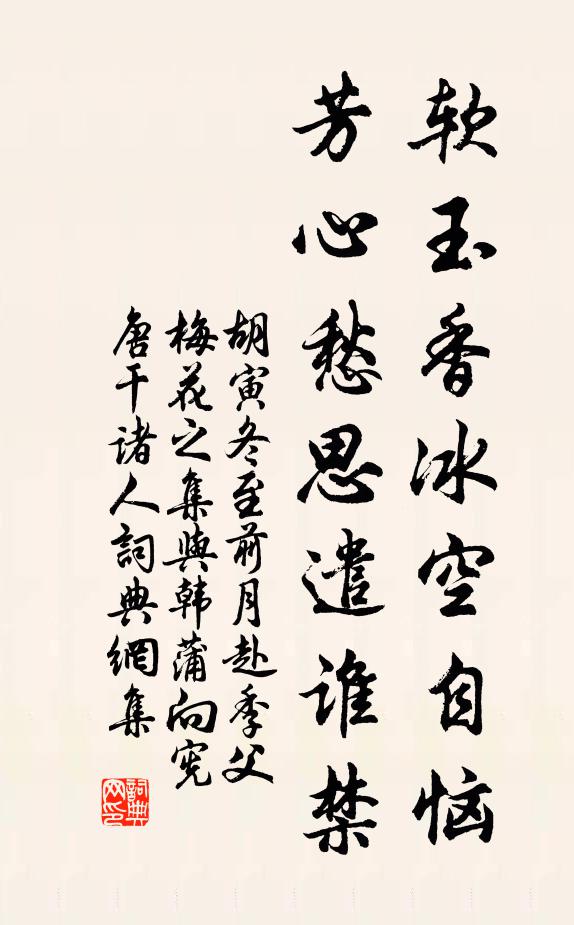 软玉香冰空自恼
芳心愁思遣谁禁
胡寅冬至前月赴季父
梅花之集與韩蒲向宪
唐干诸人詞典網集
詞典网印